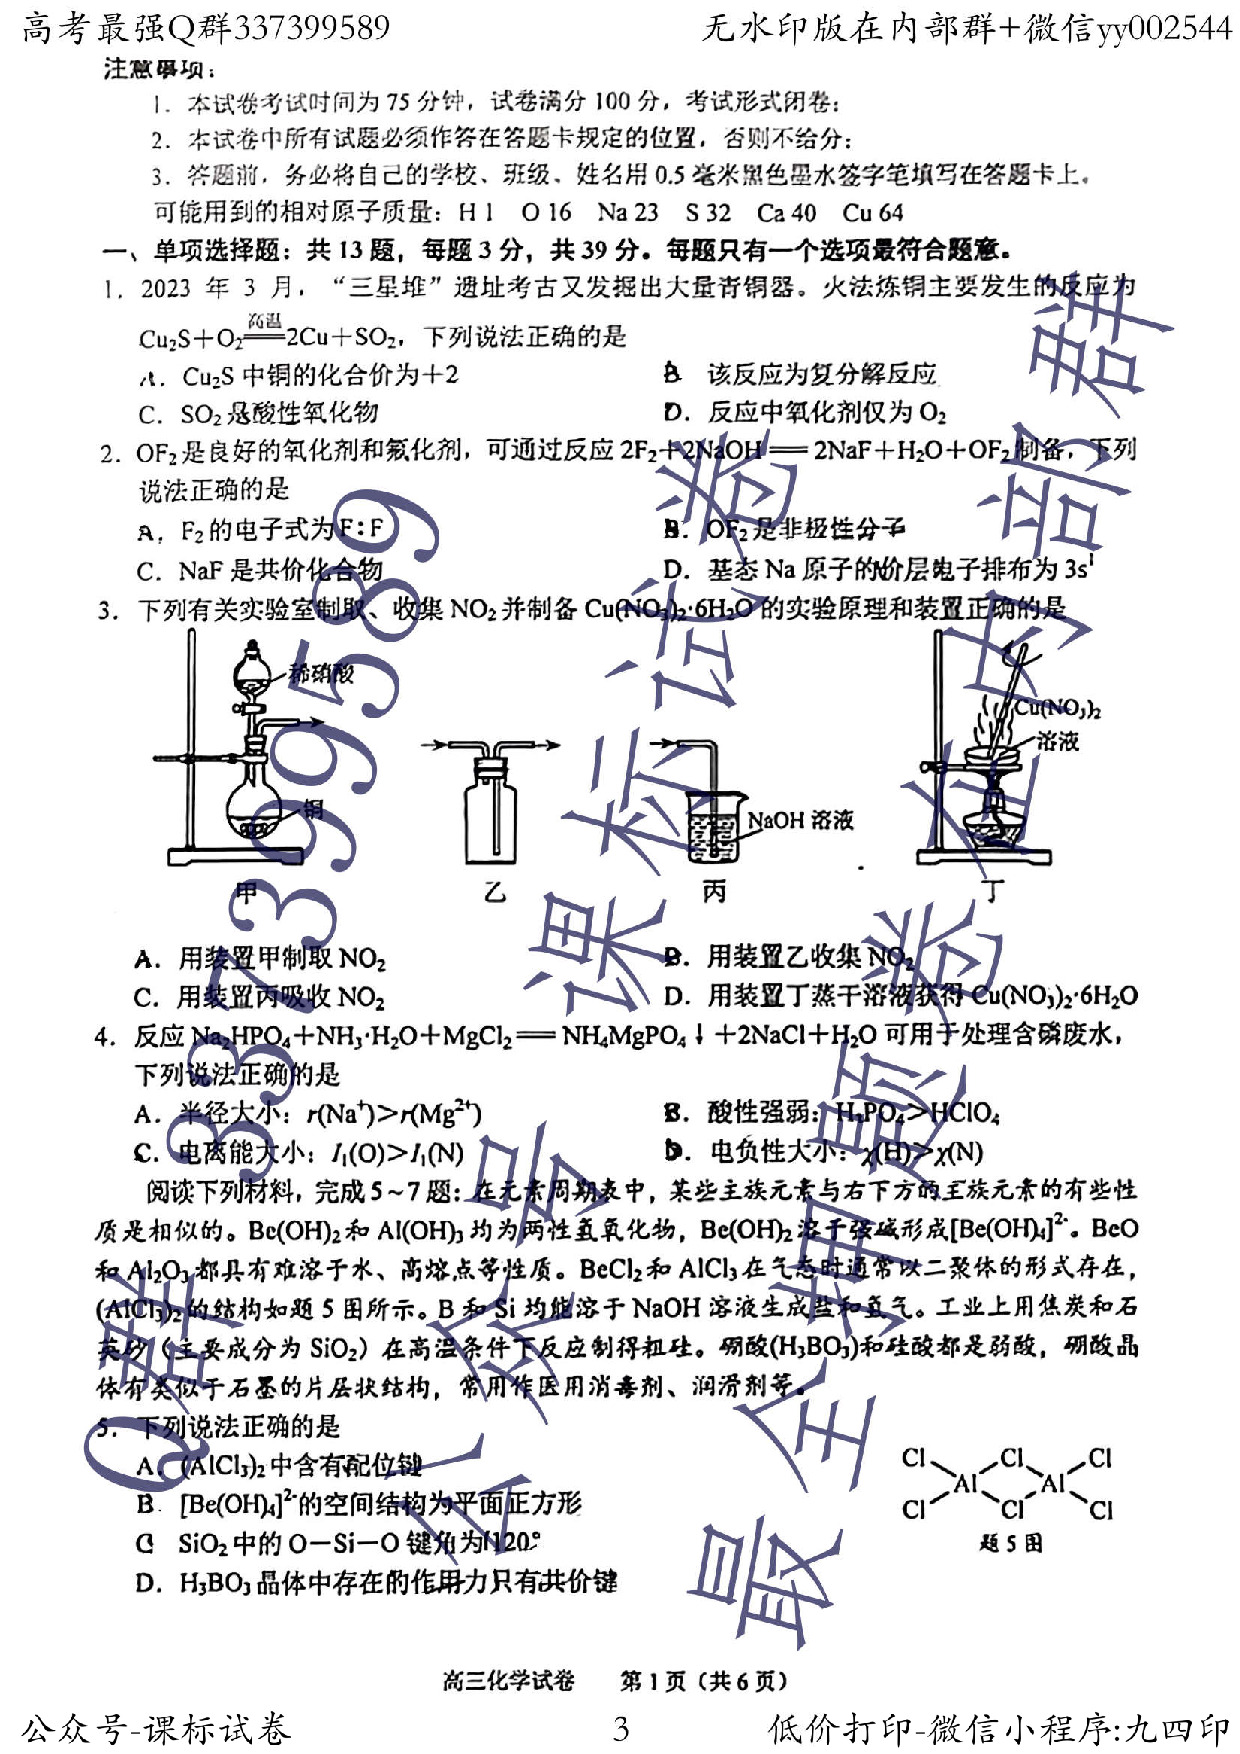 高考最强Q群337399589
无水印版在内部群+微信yy002544
注意事项：
1．本试卷考试时间为 75 分钟，试卷满分 100 分，考试形式闭卷；
2．本试卷中所有试题必须作答在答题卡规定的位置，否则不给分；
3．答题前，务必将自己的学校、班级、姓名用 0.5 毫米黑色墨水签字笔填写在答题卡上。
可能用到的相对原子质量：H 1 O 16 Na 23 S 32 Ca 40 Cu 64
一、单项选择题：共 13 题，每题 3 分，共 39 分。每题只有一个选项最符合题意。
1．2023 年 3 月，“三星堆”遗址考古又发掘出大量青铜器。火法炼铜主要发生的反应为
Cu₂S＋O₂ 高温══ 2Cu＋SO₂，下列说法正确的是
A．Cu₂S 中铜的化合价为＋2
B 该反应为复分解反应
C．SO₂ 是酸性氧化物
D．反应中氧化剂仅为 O₂
2．OF₂ 是良好的氧化剂和氟化剂，可通过反应 2F₂＋2NaOH══2NaF＋H₂O＋OF₂ 制备，下列
说法正确的是
A．F₂ 的电子式为 F∶F
B．OF₂ 是非极性分子
C．NaF 是共价化合物
D．基态 Na 原子的价层电子排布为 3s¹
3．下列有关实验室制取、收集 NO₂ 并制备 Cu(NO₃)₂·6H₂O 的实验原理和装置正确的是
稀硝酸
铜
甲
乙
NaOH 溶液
丙
Cu(NO₃)₂
溶液
丁
A．用装置甲制取 NO₂
B．用装置乙收集 NO₂
C．用装置丙吸收 NO₂
D．用装置丁蒸干溶液获得 Cu(NO₃)₂·6H₂O
4．反应 Na₂HPO₄＋NH₃·H₂O＋MgCl₂══NH₄MgPO₄↓＋2NaCl＋H₂O 可用于处理含磷废水，
下列说法正确的是
A．半径大小：r(Na⁺)＞r(Mg²⁺)
B．酸性强弱：H₃PO₄＞HClO₄
C．电离能大小：I₁(O)＞I₁(N)
D．电负性大小：χ(H)＞χ(N)
阅读下列材料，完成 5～7 题：在元素周期表中，某些主族元素与右下方的主族元素的有些性
质是相似的。Be(OH)₂ 和 Al(OH)₃ 均为两性氢氧化物，Be(OH)₂ 溶于强碱形成[Be(OH)₄]²⁻。BeO
和 Al₂O₃ 都具有难溶于水、高熔点等性质。BeCl₂ 和 AlCl₃ 在气态时通常以二聚体的形式存在，
(AlCl₃)₂ 的结构如题 5 图所示。B 和 Si 均能溶于 NaOH 溶液生成盐和氢气。工业上用焦炭和石
英砂（主要成分为 SiO₂）在高温条件下反应制得粗硅。硼酸(H₃BO₃)和硅酸都是弱酸，硼酸晶
体有类似于石墨的片层状结构，常用作医用消毒剂、润滑剂等。
5．下列说法正确的是
A．(AlCl₃)₂ 中含有配位键
B．[Be(OH)₄]²⁻的空间结构为平面正方形
C SiO₂ 中的 O－Si－O 键角为 120°
D．H₃BO₃ 晶体中存在的作用力只有共价键
Cl Cl Cl
Al Al
Cl Cl Cl
题 5 图
Q群337399589
公众号 课标试卷
最全押题卷在内部群
高三化学试卷 第 1 页（共 6 页）
公众号-课标试卷
3
低价打印-微信小程序:九四印